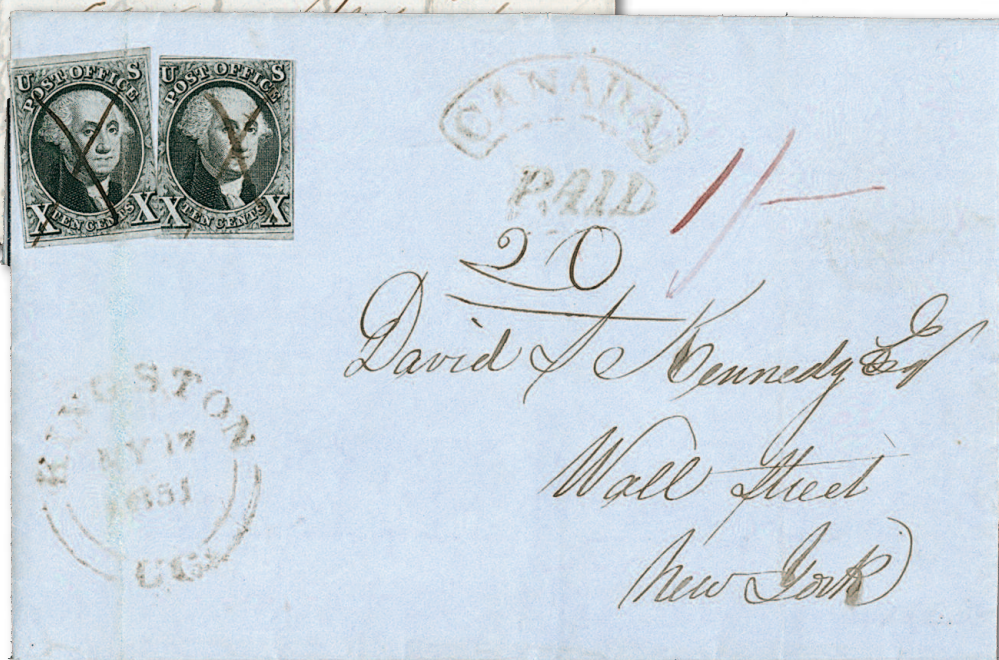 U POST OFFICE S
X TEN CENTS X
U POST OFFICE S
X TEN CENTS X
CANADA
PAID
1/-
20
David S Kennedy Esq
Wall Street
New York
KINGSTON
MY 17
1851
U.C.